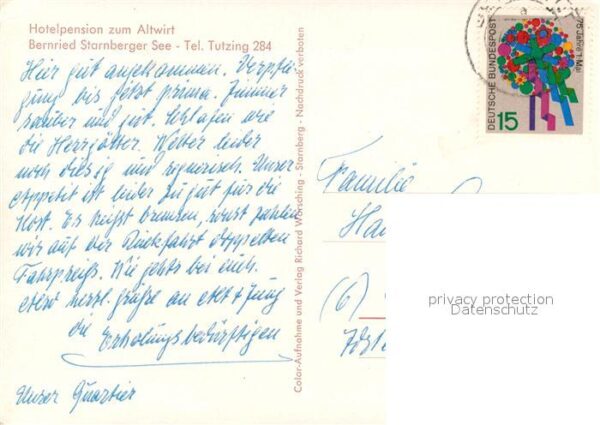 Hotelpension zum Altwirt
Bernried Starnberger See - Tel. Tutzing 284
Hier gut angekommen. Verpfle-
gung bis jetzt prima. Zimmer
sauber und gut. Schlafen wie
die Herrgötter. Wetter leider
noch diesig und regnerisch. Unser
Appetit ist leider zu gut für die
Kost. Es heißt bremsen, sonst zahlen
wir auf der Rückfahrt doppelten
Fahrpreiß. Wie gehts bei euch.
herzl. Grüße an
die Erholungsbedürftigen
Unser Quartier
Color-Aufnahme und Verlag Richard Wörsching - Starnberg - Nachdruck verboten
DEUTSCHE BUNDESPOST
75 Jahre 1. Mai
15
Familie
Ha
(6)
privacy protection
Datenschutz